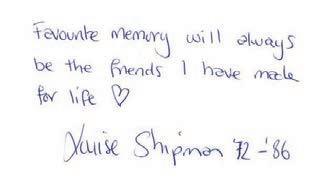 Favourite memory will always
be the friends I have made
for life ♡
Louise Shipman '72-'86